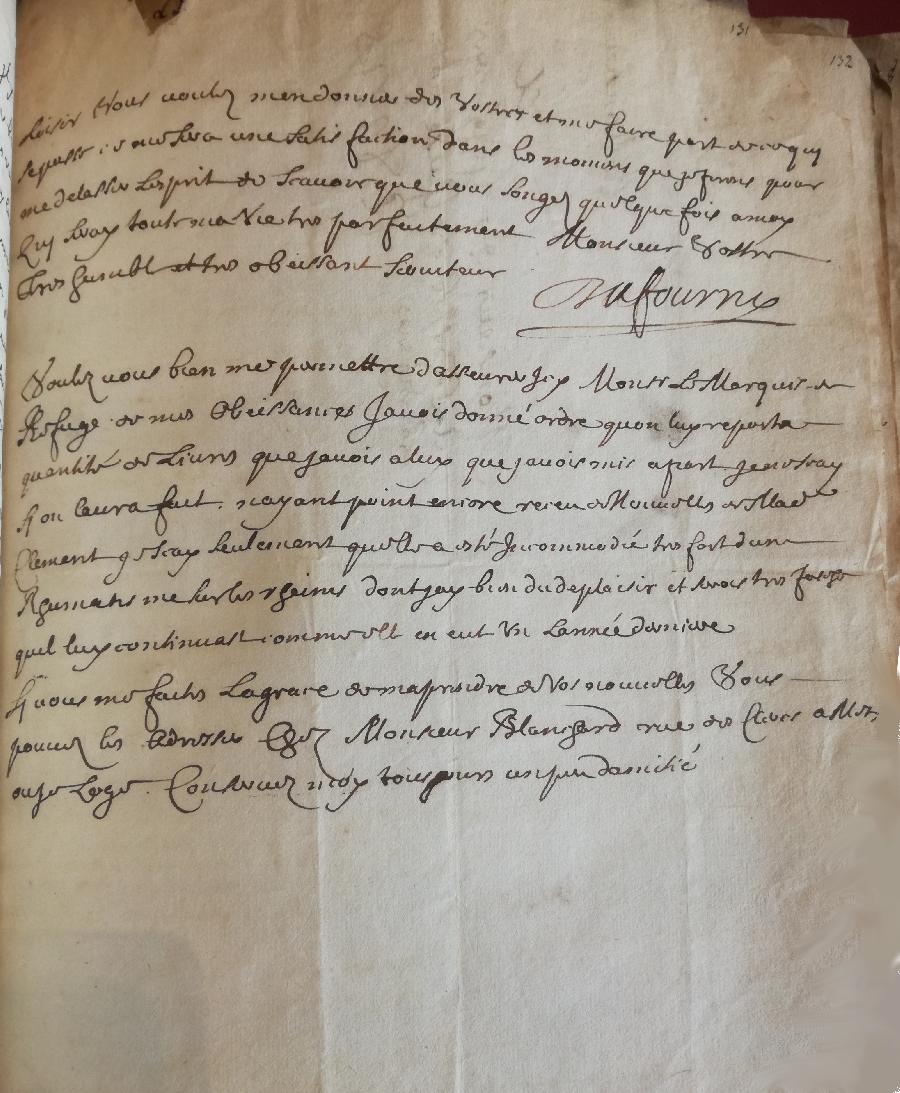 131
132
Loisir Vous voulez men donner des Vostres et me faire part de ce qui
se passe ce me sera une satisfaction dans les momens que je feray pour
me delasser Lesprit de scavoir que vous songez quelque fois a moy
Qui seray toute ma Vie tres parfaitement Monsieur Vostre
Tres humble et tres obeissant serviteur
Dufourny
Voulez vous bien me permettre dasseurer Icy Monsr Le Marquis de
Refuge de mes Obeissances Javois donné ordre quon luy reporta
quantité de Livres que javois a luy que javois mis apart je ne scay
si on laura fait. nayant point encore receu de Nouvelles de Made
Clement je scay seulement quelle a esté Incommodée tres fort dun
Rhumatisme sur les rheins dont jay bien du deplaisir et serois tres fasché
quil luy continuast comme elle en eut Un Lannée derniere
si vous me faites La grace de maprendre de Vos nouvelles Vous
pouvez les adresser Chez Monsieur Blanchard rue des Clercs a Metz
ou je Loge. Conservez moy tousjours un peu damitié